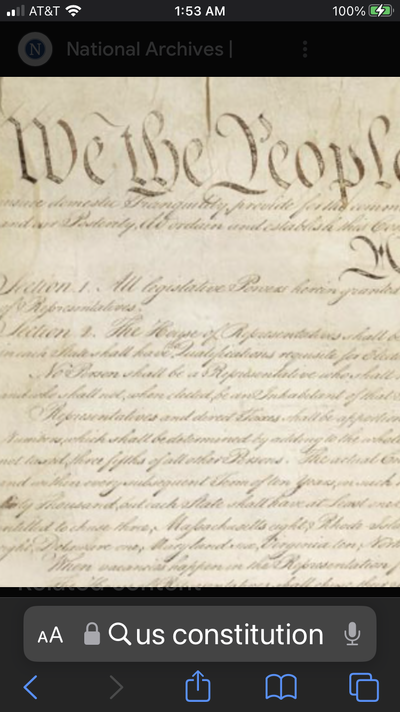 AT&T 1:53 AM 100%
N National Archives |
We the People
insure domestic Tranquility, provide for the common
and our Posterity, do ordain and establish this Con
Section. 1. All legislative Powers herein granted
of Representatives.
Section. 2. The House of Representatives shall be
in each State shall have Qualifications requisite for Elect
No Person shall be a Representative who shall
and who shall not, when elected, be an Inhabitant of that
Representatives and direct Taxes shall be apportion
Numbers, which shall be determined by adding to the whole
not taxed, three fifths of all other Persons. The actual En
and within every subsequent Term of ten Years, in such
thirty Thousand, but each State shall have at Least one
entitled to chuse three, Massachusetts eight, Rhode Isla
eight, Delaware one, Maryland six, Virginia ten, Nort
When vacancies happen in the Representation f
Related content
AA us constitution